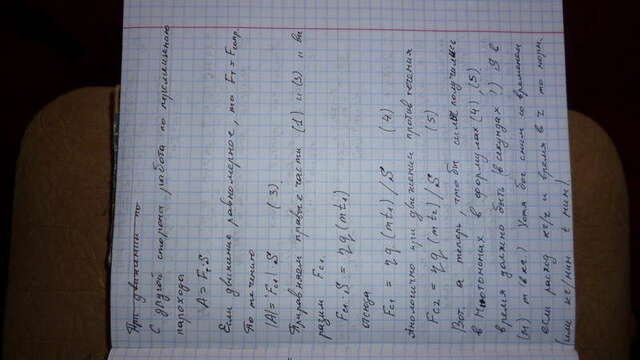 При движении по
С другой стороны работа по перемещению
парохода
A = Fт S
Если движение равномерное, то Fт = Fсопр.
По течению
|A| = |Fc1| S (3)
Приравняем правые части (1) и (3), вы
разим Fc1
Fc1 · S = ηq (mt1)
отсюда
Fc1 = ηq (mt1) / S (4)
Аналогично при движении против течения
Fc2 = ηq (mt2) / S (5)
Вот, а теперь, чтобы силы получились
в Ньютонах в формулах (4), (5)
время должно быть (в секундах !) S в
(м) m в кг.) Хотя бог с ним со временем
если расход кг/ч и время в ч то норм.
(или кг/мин t мин)